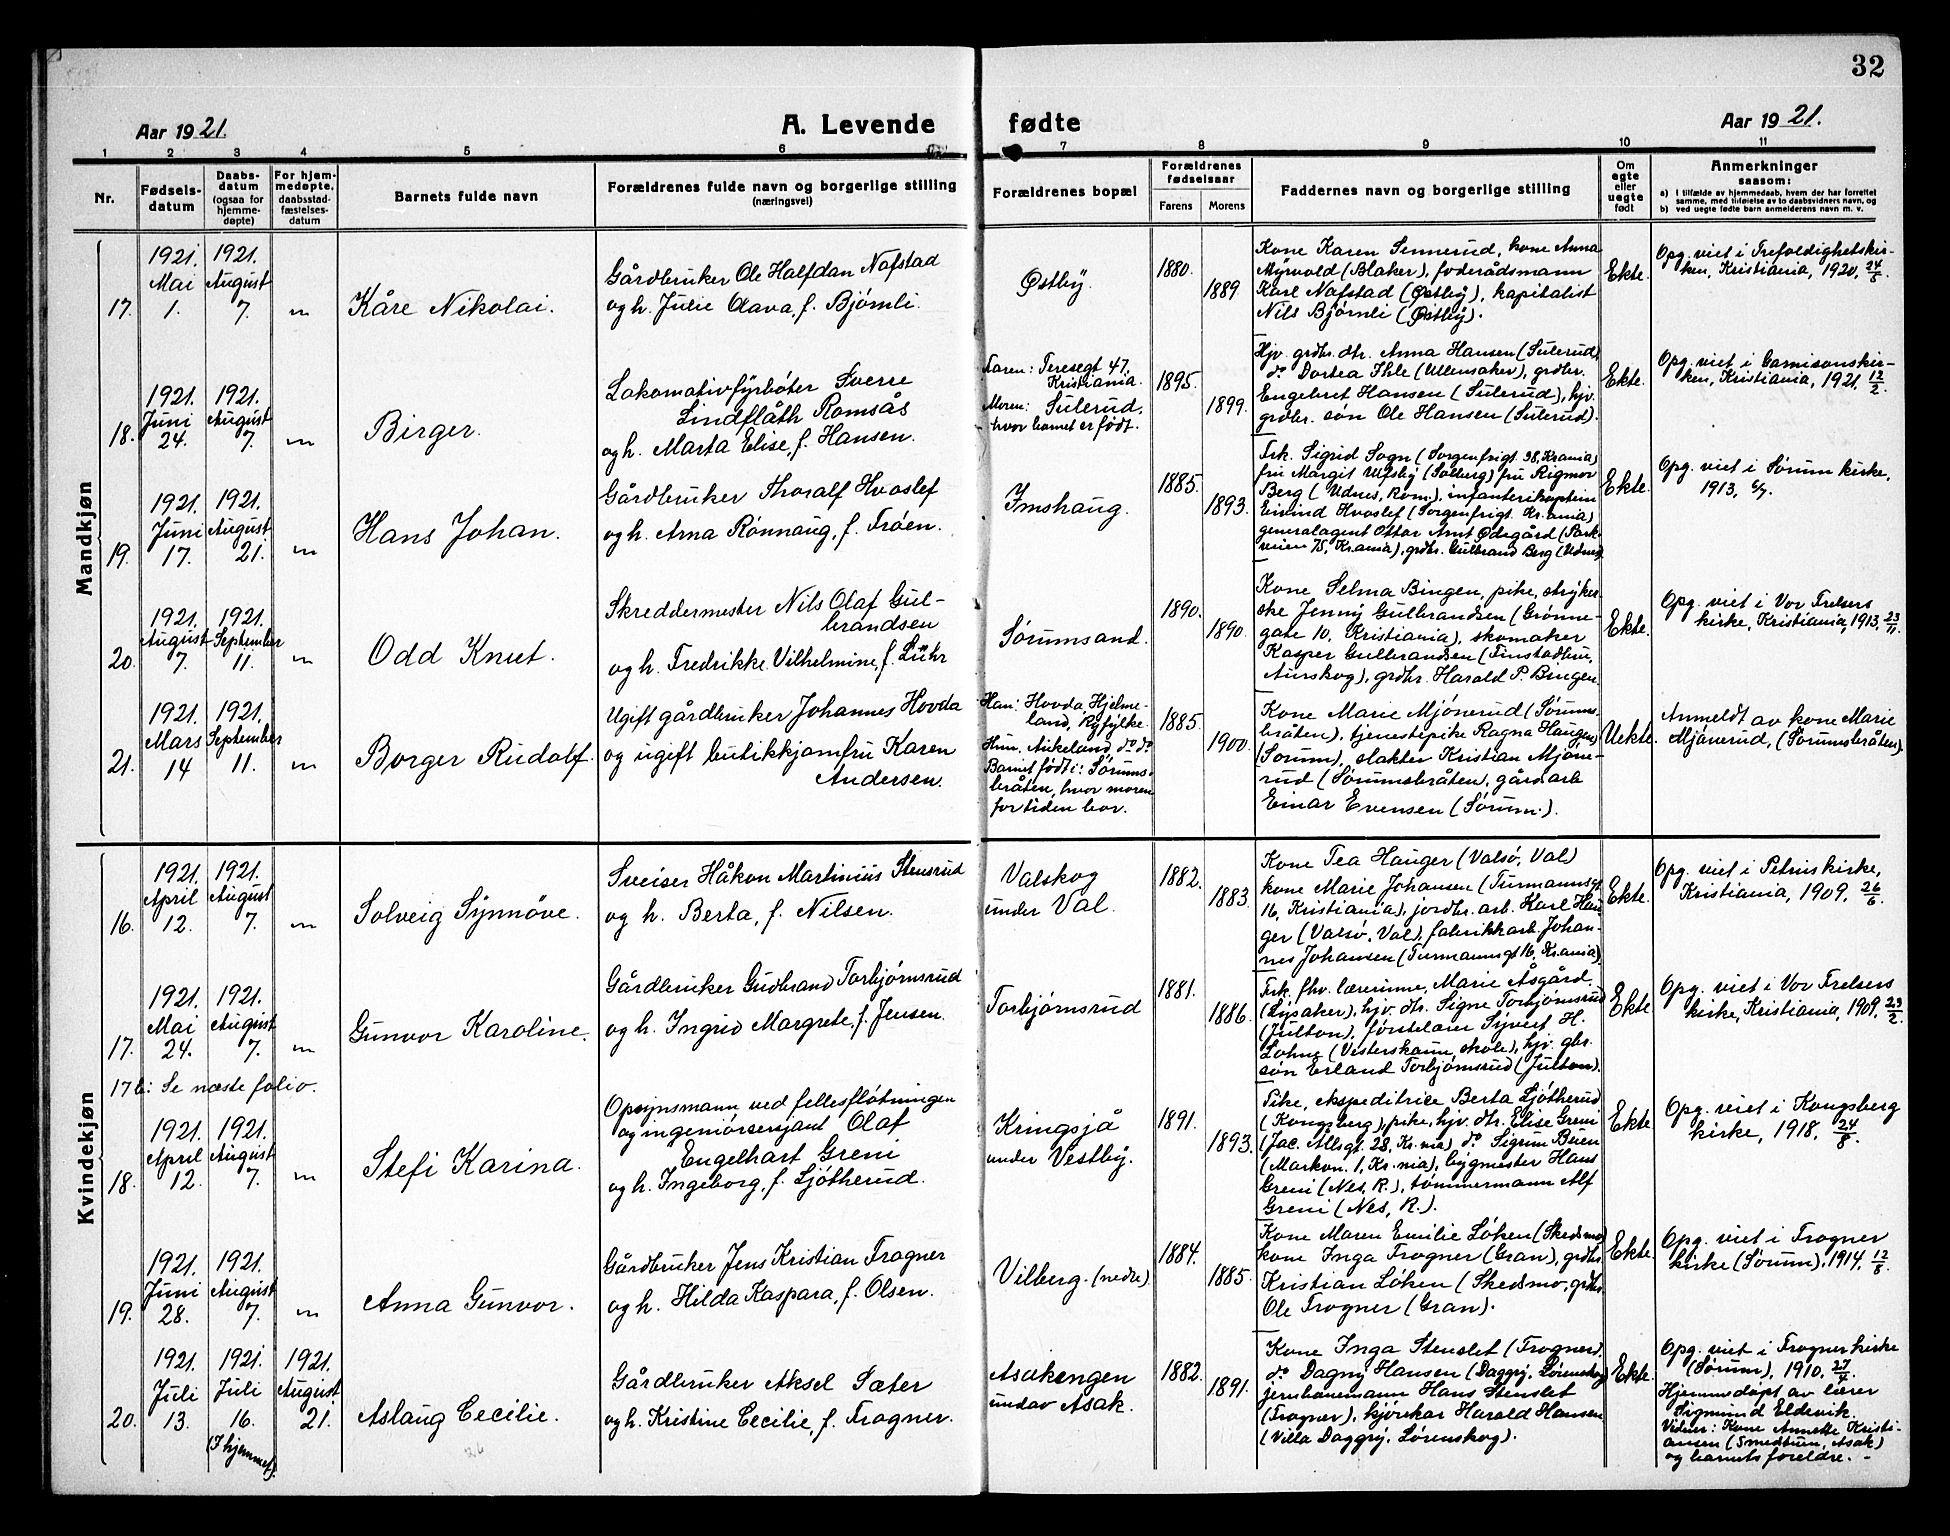 32
Aar 1921.
A. Levende fødte
Aar 1921.
1 2 3 4 5 6 7 8 9 10 11
Nr.
Fødsels-
datum
Daabs-
datum
(ogsaa for
hjemme-
døpte)
For hjem-
medøpte,
daabsstad-
fæstelses-
datum
Barnets fulde navn
Forældrenes fulde navn og borgerlige stilling
(næringsvei)
Forældrenes bopæl
Forældrenes
fødselsaar
Farens Morens
Faddernes navn og borgerlige stilling
Om
egte
eller
uegte
født
Anmerkninger
saasom:
a) I tilfælde av hjemmedaab, hvem der har forrettet
samme, med tilføielse av to daabsvidners navn, og
b) ved uegte fødte barn anmelderens navn m. v.
Mandkjøn
17.
1921.
Mai
1.
1921.
August
7.
"
Kåre Nikolai.
Gårdbruker Ole Halfdan Nafstad
og h. Julie Olava, f. Bjørnli.
Østby.
1880.
1889.
Kone Karen Sennerud, kone Anna
Myrvold (Blaker), føderådsmann
Karl Nafstad (Østby), kapitalist
Nils Bjørnli (Østby).
Ekte.
Opg. viet i Trefoldighetskir-
ken, Kristiania, 1920, 24/5
18.
1921.
Juni
24.
1921.
August
7.
"
Birger.
Lokomotivfyrbøter Sverre
Lindflåth Romsås
og h. Marta Elise, f. Hansen.
Faren: Teresegt 47,
Kristiania.
Moren: Sulerud,
hvor barnet er født.
1895.
1899.
Hjv. grdbr. dtr. Anna Hansen (Sulerud)
do Dortea Ihle (Ullensaker), grdbr.
Engebret Hansen (Sulerud), hjv.
grdbr. søn Ole Hansen (Sulerud).
Ekte.
Opg. viet i Garnisonskir-
ken, Kristiania, 1921, 12/2
19.
1921.
Juni
17.
1921.
August
21.
"
Hans Johan.
Gårdbruker Thoralf Hvoslef
og h. Arna Rønnaug, f. Frøen.
Imshaug.
1885.
1893.
Frk. Sigrid Sogn (Sorgenfrigt. 38, Krania)
fru Margit Ulfsby (Solberg) fru Rigmor
Berg (Udnes, Rom.), infanterikaptein
Eivind Hvoslef (Sorgenfrigt. Kr.ania)
generalagent Ottar Amt Ødegård (Park-
veien 75, Kr.ania), grdbr. Gulbrand Berg (Udnes)
Ekte.
Opg. viet i Sørum kirke,
1913, 6/7.
20.
1921.
August
7.
1921.
September
11.
"
Odd Knut.
Skreddermester Nils Olaf Gul-
brandsen
og h. Fredrikke Vilhelmine, f. Lühr
Sørumsand.
1890.
1890.
Kone Selma Bingen, pike, stryker-
ske Jenny Gulbrandsen (Grønne-
gate 10, Kristiania), skomaker
Kasper Gulbrandsen (Finstadbru,
Aurskog), grdbr. Harald P. Bingen.
Ekte.
Opg. viet i Vor Frelsers
kirke, Kristiania, 1913, 23/11.
21.
1921.
Mars
14
1921.
September
11.
"
Borger Rudolf.
Ugift gårdbruker Johannes Hovda
og ugift butikkjomfru Karen
Andersen.
Han: Hovda, Hjelme-
land, Ryfylke.
Hun: Aukeland, do do
Barnet født i: Sørums-
bråten, hvor moren
for tiden bor.
1885.
1900.
Kone Marie Mjønerud (Sørums-
bråten), tjenestepike Ragna Haugen
(Sørum), slakter Kristian Mjøne-
rud (Sørumsbråten), gårdarb.
Einar Evensen (Sørum).
Uekte.
Anmeldt av kone Marie
Mjønerud, (Sørumsbråten).
Kvindekjøn
16.
1921.
April
12.
1921.
August
7.
"
Solveig Synnøve.
Sveiser Håkon Martinius Stensrud
og h. Berta, f. Nilsen.
Valskog
under Val.
1882.
1883.
Kone Tea Hauger (Valsø, Val)
kone Marie Johansen (Turmannsgt
16, Kristiania), jordbr. arb. Karl Hau-
ger (Valsø, Val), fabrikkarb. Johan-
nes Johansen (Turmannsgt 16, Kr.ania).
Ekte.
Opg. viet i Petruskirke,
Kristiania, 1909, 26/6.
17.
1921.
Mai
24.
1921.
August
7.
"
Gunvor Karoline.
Gårdbruker Gudbrand Torbjørnsrud
og h. Ingrid Margrete, f. Jensen.
Torbjørnsrud
1881.
1886.
Frk. fhv. lærerinne, Marie Åsgård
(Lysaker), hjv. dtr. Signe Torbjørnsrud
(Julton), førstelærer Syvert H.
Lohne (Vesterskaun skole), hjv. gbr.
søn Erland Torbjørnsrud (Julton).
Ekte.
Opg. viet i Vor Frelsers
kirke, Kristiania, 1909, 23/2.
17 b: Se næste folio.
18.
1921.
April
12.
1921.
August
7.
"
Stefi Karina.
Opsynsmann ved fellesfløtningen
og ingeniørsersjant Olaf
Engelhart Greni
og h. Ingeborg, f. Sjøtherud.
Kringsjå
under Vestby.
1891.
1893.
Pike, ekspeditrice Berta Sjøtherud
(Kongsberg), pike, hjv. dtr. Elise Greni
(Jac. Allsgt. 28, Kr.nia) do Sigrun Buen
(Markvn. 1, Kr.nia), bygmester Hans
Greni (Nes, R.), tømmermann Alf
Greni (Nes, R.).
Ekte.
Opg. viet i Kongsberg
kirke, 1918, 24/8.
19.
1921.
Juni
28.
1921.
August
7.
"
Anna Gunvor.
Gårdbruker Jens Kristian Frogner
og h. Hilda Kaspara, f. Olsen.
Vilberg. (nedre)
1884.
1885.
Kone Maren Emilie Løken (Skedsmo)
kone Inga Frogner (Gran), grdbr.
Kristian Løken (Skedsmo, grdbr.
Ole Frogner (Gran).
Ekte.
Opg. viet i Frogner
kirke (Sørum), 1914, 12/8.
20.
1921.
Juli
13.
1921.
Juli
16.
(I hjemmet)
1921.
August
21.
Aslaug Cecilie.
Gårdbruker Aksel Sæter
og h. Kristine Cecilie, f. Frogner.
Asakengen
undar Asak.
1882.
1891.
Kone Inga Stenslet (Frogner),
do Dagny Hansen (Daggry, Lørenskog)
jernbanemann Hans Stenslet
(Frogner), kjørekar Harald Hansen
(Villa Daggry, Lørenskog).
Ekte.
Opg. viet i Frogner kirke
(Sørum), 1910, 27/4.
Hjemmedøpt av lærer
Sigmund Eldevik.
Vidner: Kone Annette Kristi-
ansen (Smedtun, Asak)
og barnets foreldre. -